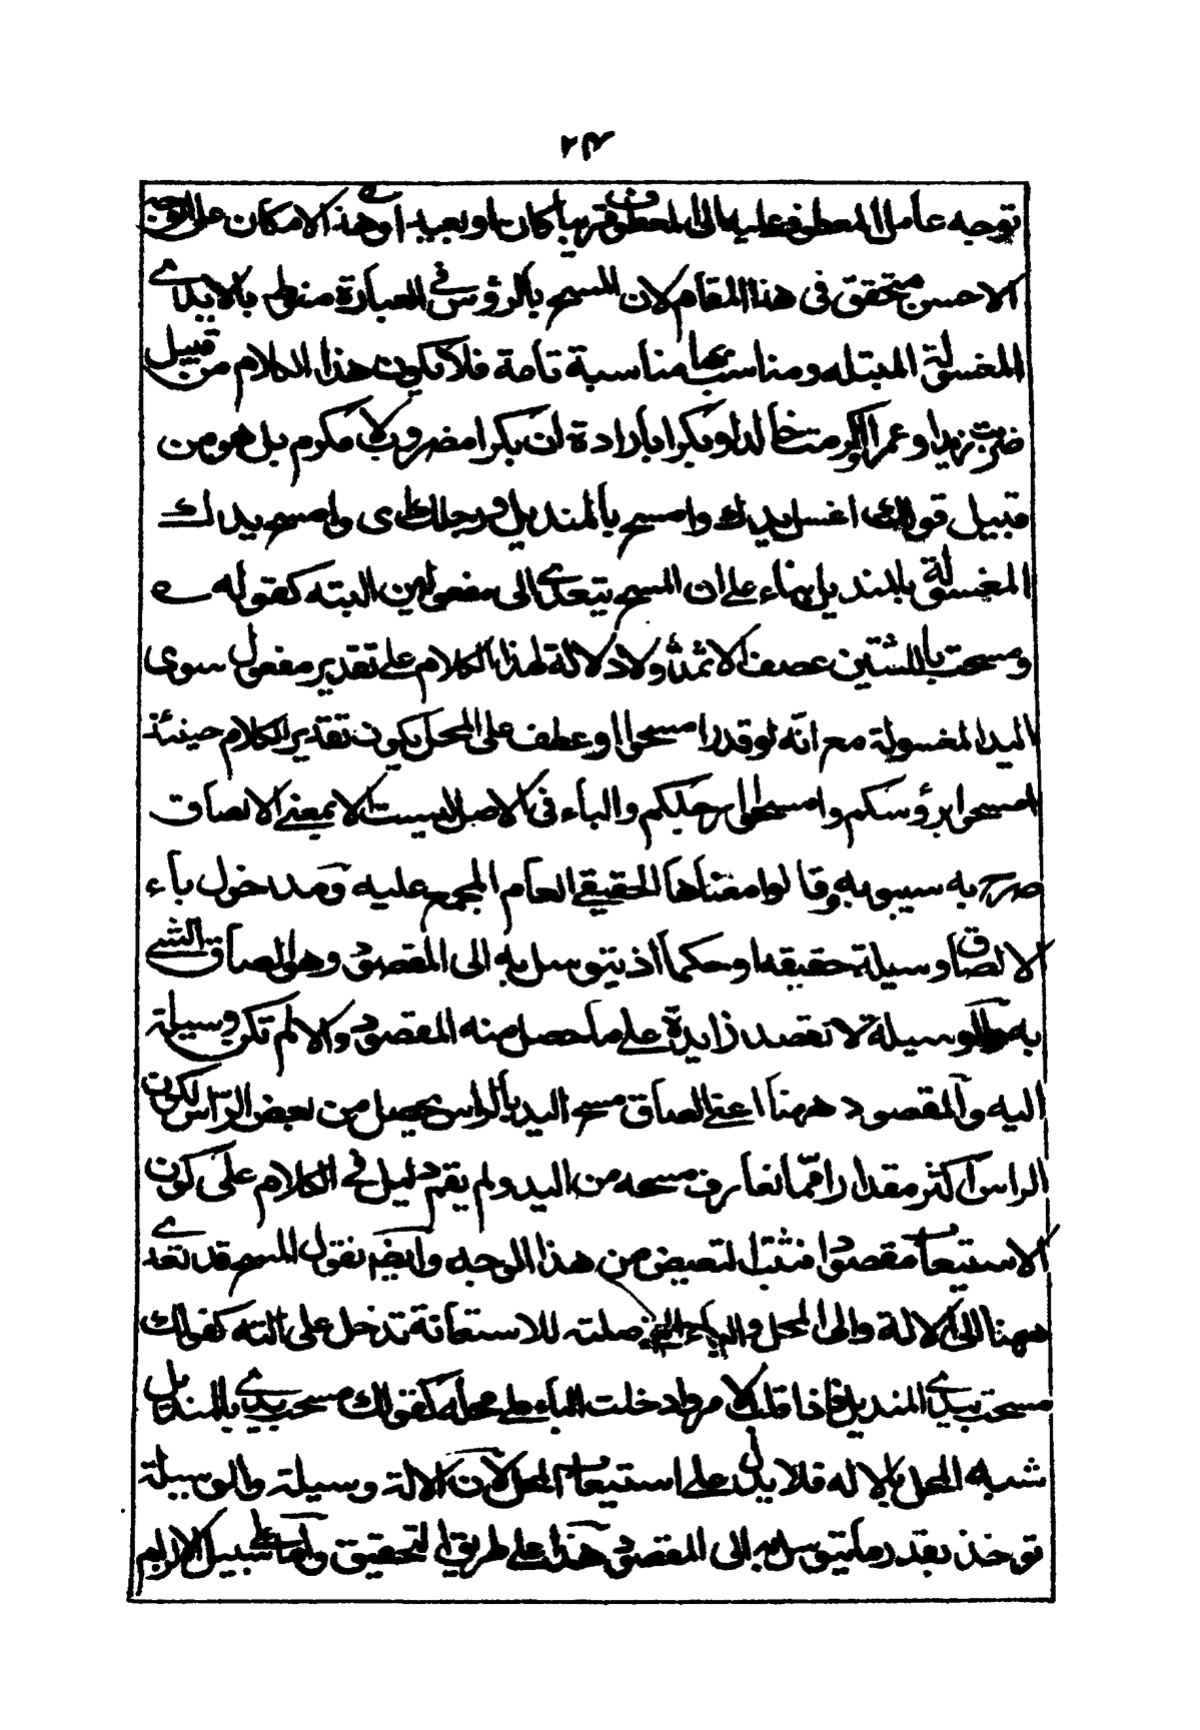 ٢٤
توجه عامل المعطوف عليه الى المعطوف قريبا كان او بعيدا وهذا الامكان على الوجه
الاحسن متحقق فى هذا المقام لان المسح بالرؤس فى العبارة منوط بالايدى
المغسولة المبتله ومناسب بها مناسبة تامة فلا يكون هذا الكلام من قبيل
ضربت زيدا وعمرا واكرمت خالدا وبكرا بارادة ان بكرا مضروب لا مكرم بل هو من
قبيل قولك اغسل يدك وامسح بالمنديل ورجلك اى وامسح يدك
المغسولة بالمنديل بناء على ان المسح يتعدى الى مفعولين البته كقوله
ومسحت باللثتين عصف الاثمد ولا دلالة لهذا الكلام على تقدير مفعول سوى
اليد المغسولة مع انه لو قدر امسحوا او عطف على المحل يكون تقدير الكلام حينئذ
امسحوا برؤسكم وامسحوا ارجلكم والباء فى الاصل ليست الا بمعنى الالصاق
صرح به سيبويه وقالوا معناها الحقيقى العام المجمع عليه ومدخول باء
الالصاق وسيلة حقيقه او حكما اذ يتوسل به الى المقصود وهو الصاق الشئ
به والوسيلة لا تقصد زايدة على ما حصل منه المقصود والا لم تكن وسيلة
اليه والمقصود ههنا اعنى الصاق مسح اليد بالراس يحصل من بعض الراس لكون
الراس اكثر مقدارا مما تعارف مسحه من اليد ولم يقم دليل فى الكلام على كون
الاستيعاب مقصودا فثبت التبعيض من هذا الوجه وايضا نقول المسح قد تعدى
ههنا الى الالة والى المحل والباء التى صلته للاستعانة تدخل على الته كقولك
مسحت بيدى المنديل فاذا قلب الامر وادخلت الباء على محله كقولك مسحت يدى بالمنديل
شبه المحل بالاله فلا يدل على استيعاب المحل لان الالة وسيلة والوسيلة
توخذ بقدر ما يتوسل به الى المقصود هذا على طريق التحقيق واما على سبيل الالزام